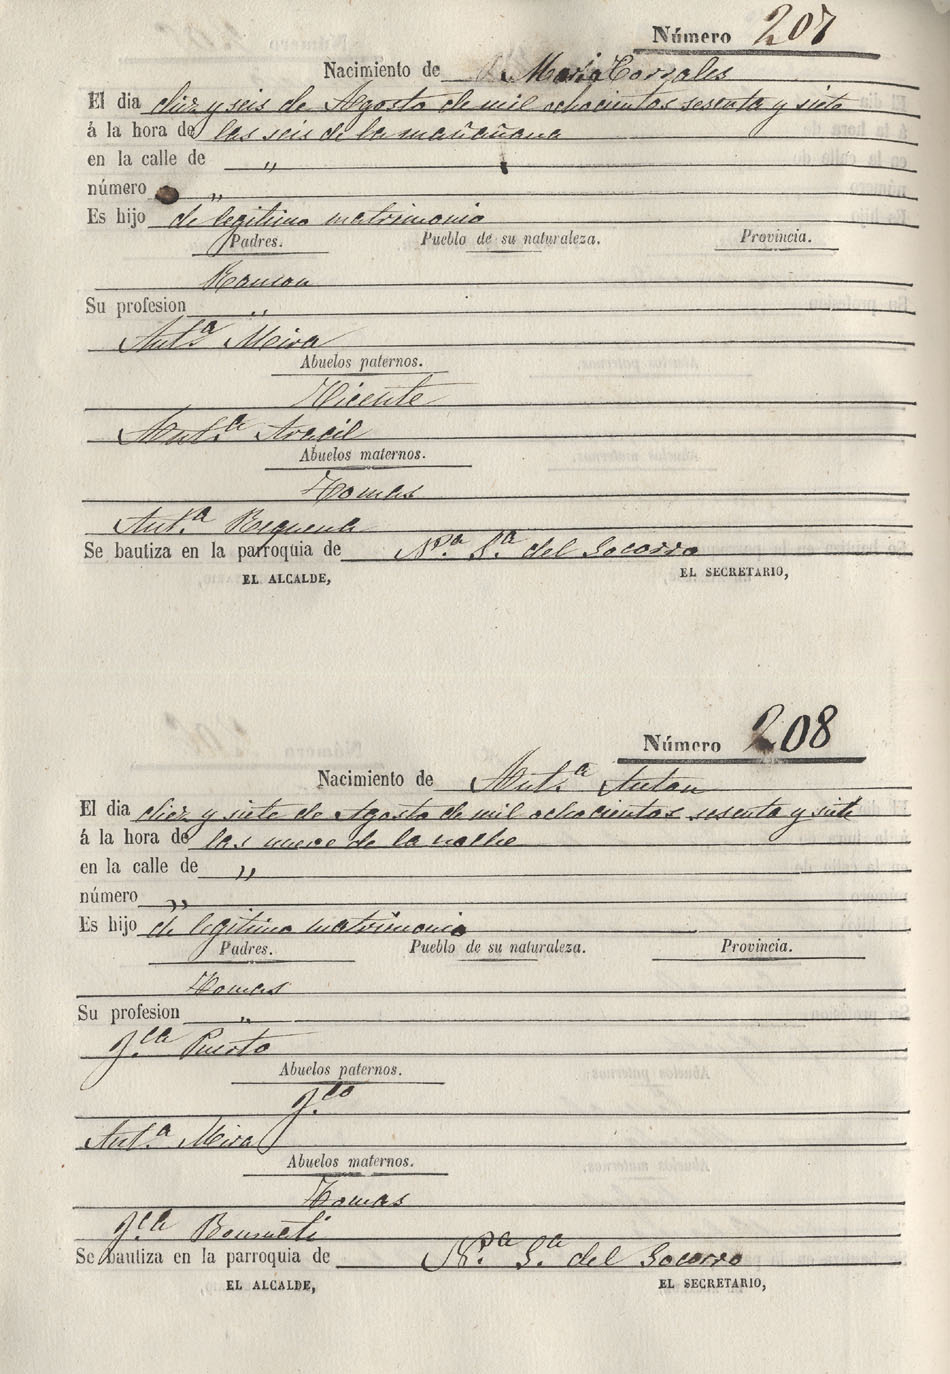 Número 207
Nacimiento de Maria Corzales
El dia diez y seis de Agosto de mil ochocientos sesenta y siete
á la hora de las seis de la mañañana
en la calle de "
número "
Es hijo de legitimo matrimonio
Padres. Pueblo de su naturaleza. Provincia.
Ramon
Su profesion "
Ant.ª Mira
Abuelos paternos.
Vicente
Ant.ª Aracil
Abuelos maternos.
Tomas
Ant.ª Requena
Se bautiza en la parroquia de N.ª S.ª del Socorro
EL ALCALDE, EL SECRETARIO,
Número 208
Nacimiento de Ant.ª Anton
El dia diez y siete de Agosto de mil ochocientos sesenta y siete
á la hora de las nueve de la noche
en la calle de "
número "
Es hijo de legitimo matrimonio
Padres. Pueblo de su naturaleza. Provincia.
Tomas
Su profesion "
f.ca Puerto
Abuelos paternos.
f.co
Ant.ª Mira
Abuelos maternos.
Tomas
f.ca
Se bautiza en la parroquia de N.ª S.ª del Socorro
EL ALCALDE, EL SECRETARIO,